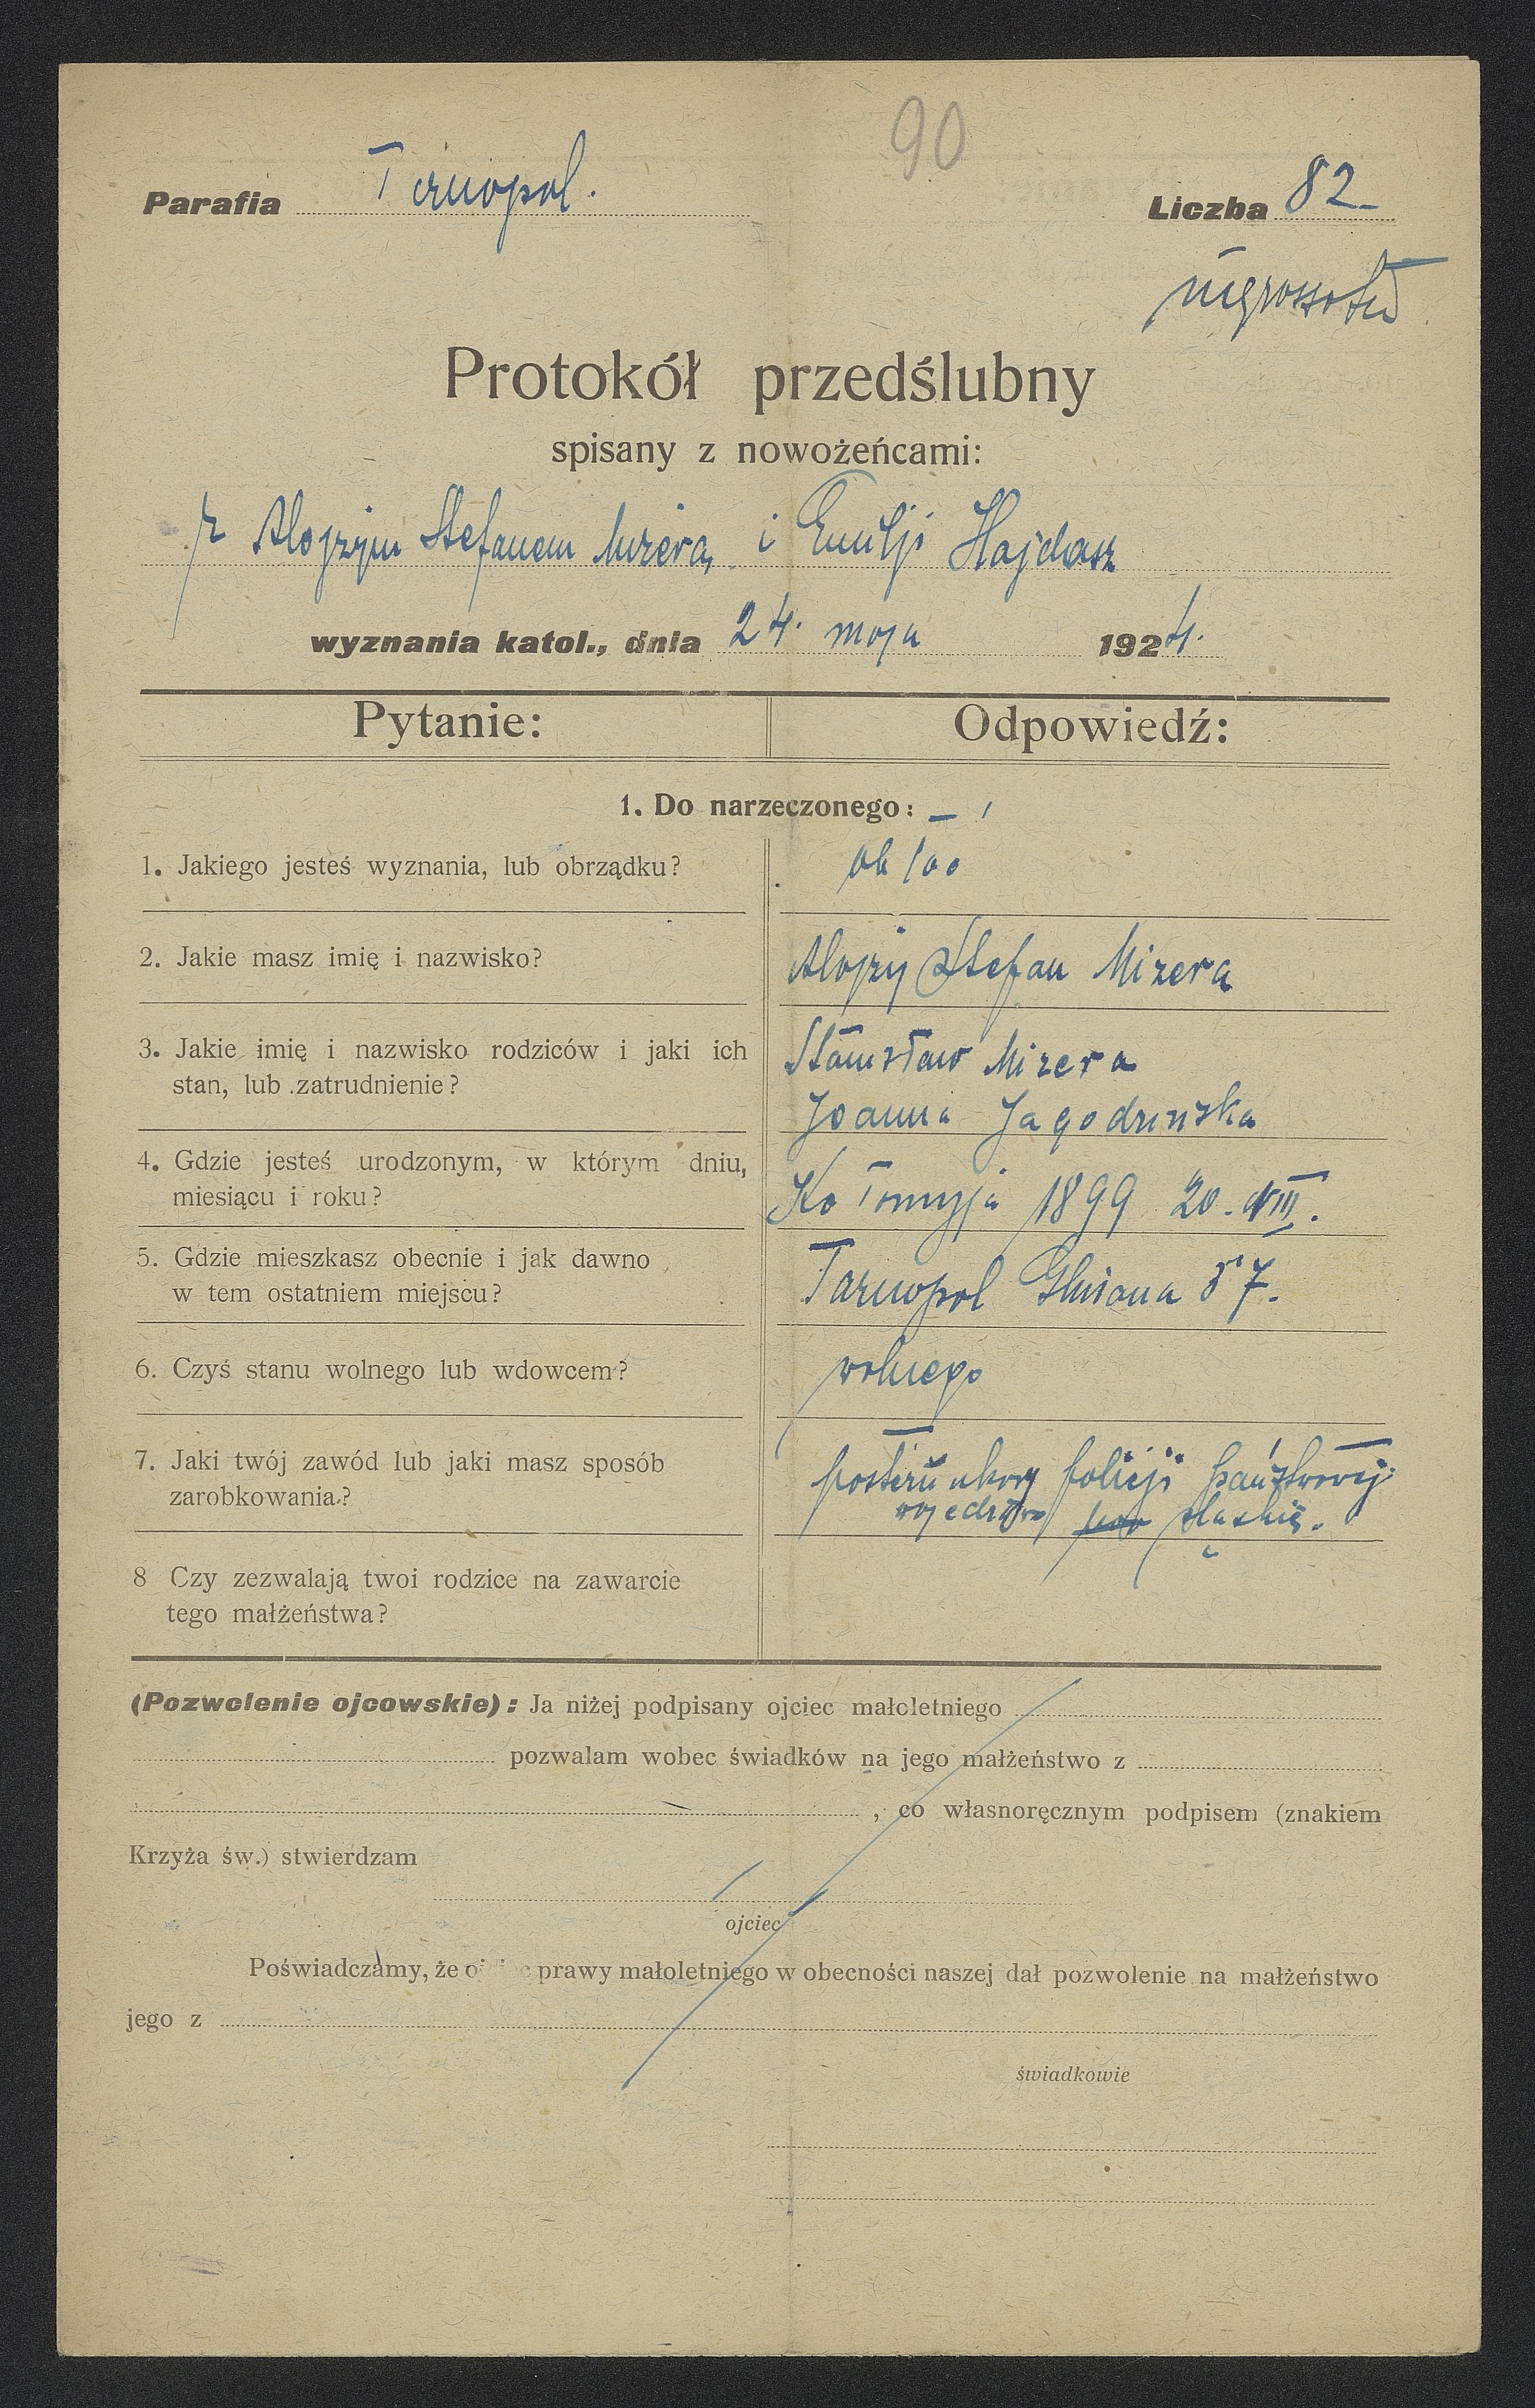 90
Parafia Tarnopol.
Liczba 82
Protokół przedślubny
spisany z nowożeńcami:
z Alojzym Stefanem Mizerą i Emilji Hajdasz
wyznania katol., dnia 24. maja 1924.
Pytanie: Odpowiedź:
1. Do narzeczonego:
1. Jakiego jesteś wyznania, lub obrządku?
2. Jakie masz imię i nazwisko? Alojzy Stefan Mizera
3. Jakie imię i nazwisko rodziców i jaki ich Stanisław Mizera
stan, lub zatrudnienie? Joanna Jagodzinska
4. Gdzie jesteś urodzonym, w którym dniu,
miesiącu i roku? Kołomyja 1899 20. VIII.
5. Gdzie mieszkasz obecnie i jak dawno
w tem ostatniem miejscu? Tarnopol 7.
6. Czyś stanu wolnego lub wdowcem? wolnego
7. Jaki twój zawód lub jaki masz sposób posterunkowy policji państwowej
zarobkowania? śląskie.
8 Czy zezwalają twoi rodzice na zawarcie
tego małżeństwa?
(Pozwolenie ojcowskie): Ja niżej podpisany ojciec małoletniego
pozwalam wobec świadków na jego małżeństwo z
, co własnoręcznym podpisem (znakiem
Krzyża św.) stwierdzam
ojciec
Poświadczamy, że prawy małoletniego w obecności naszej dał pozwolenie na małżeństwo
jego z
świadkowie